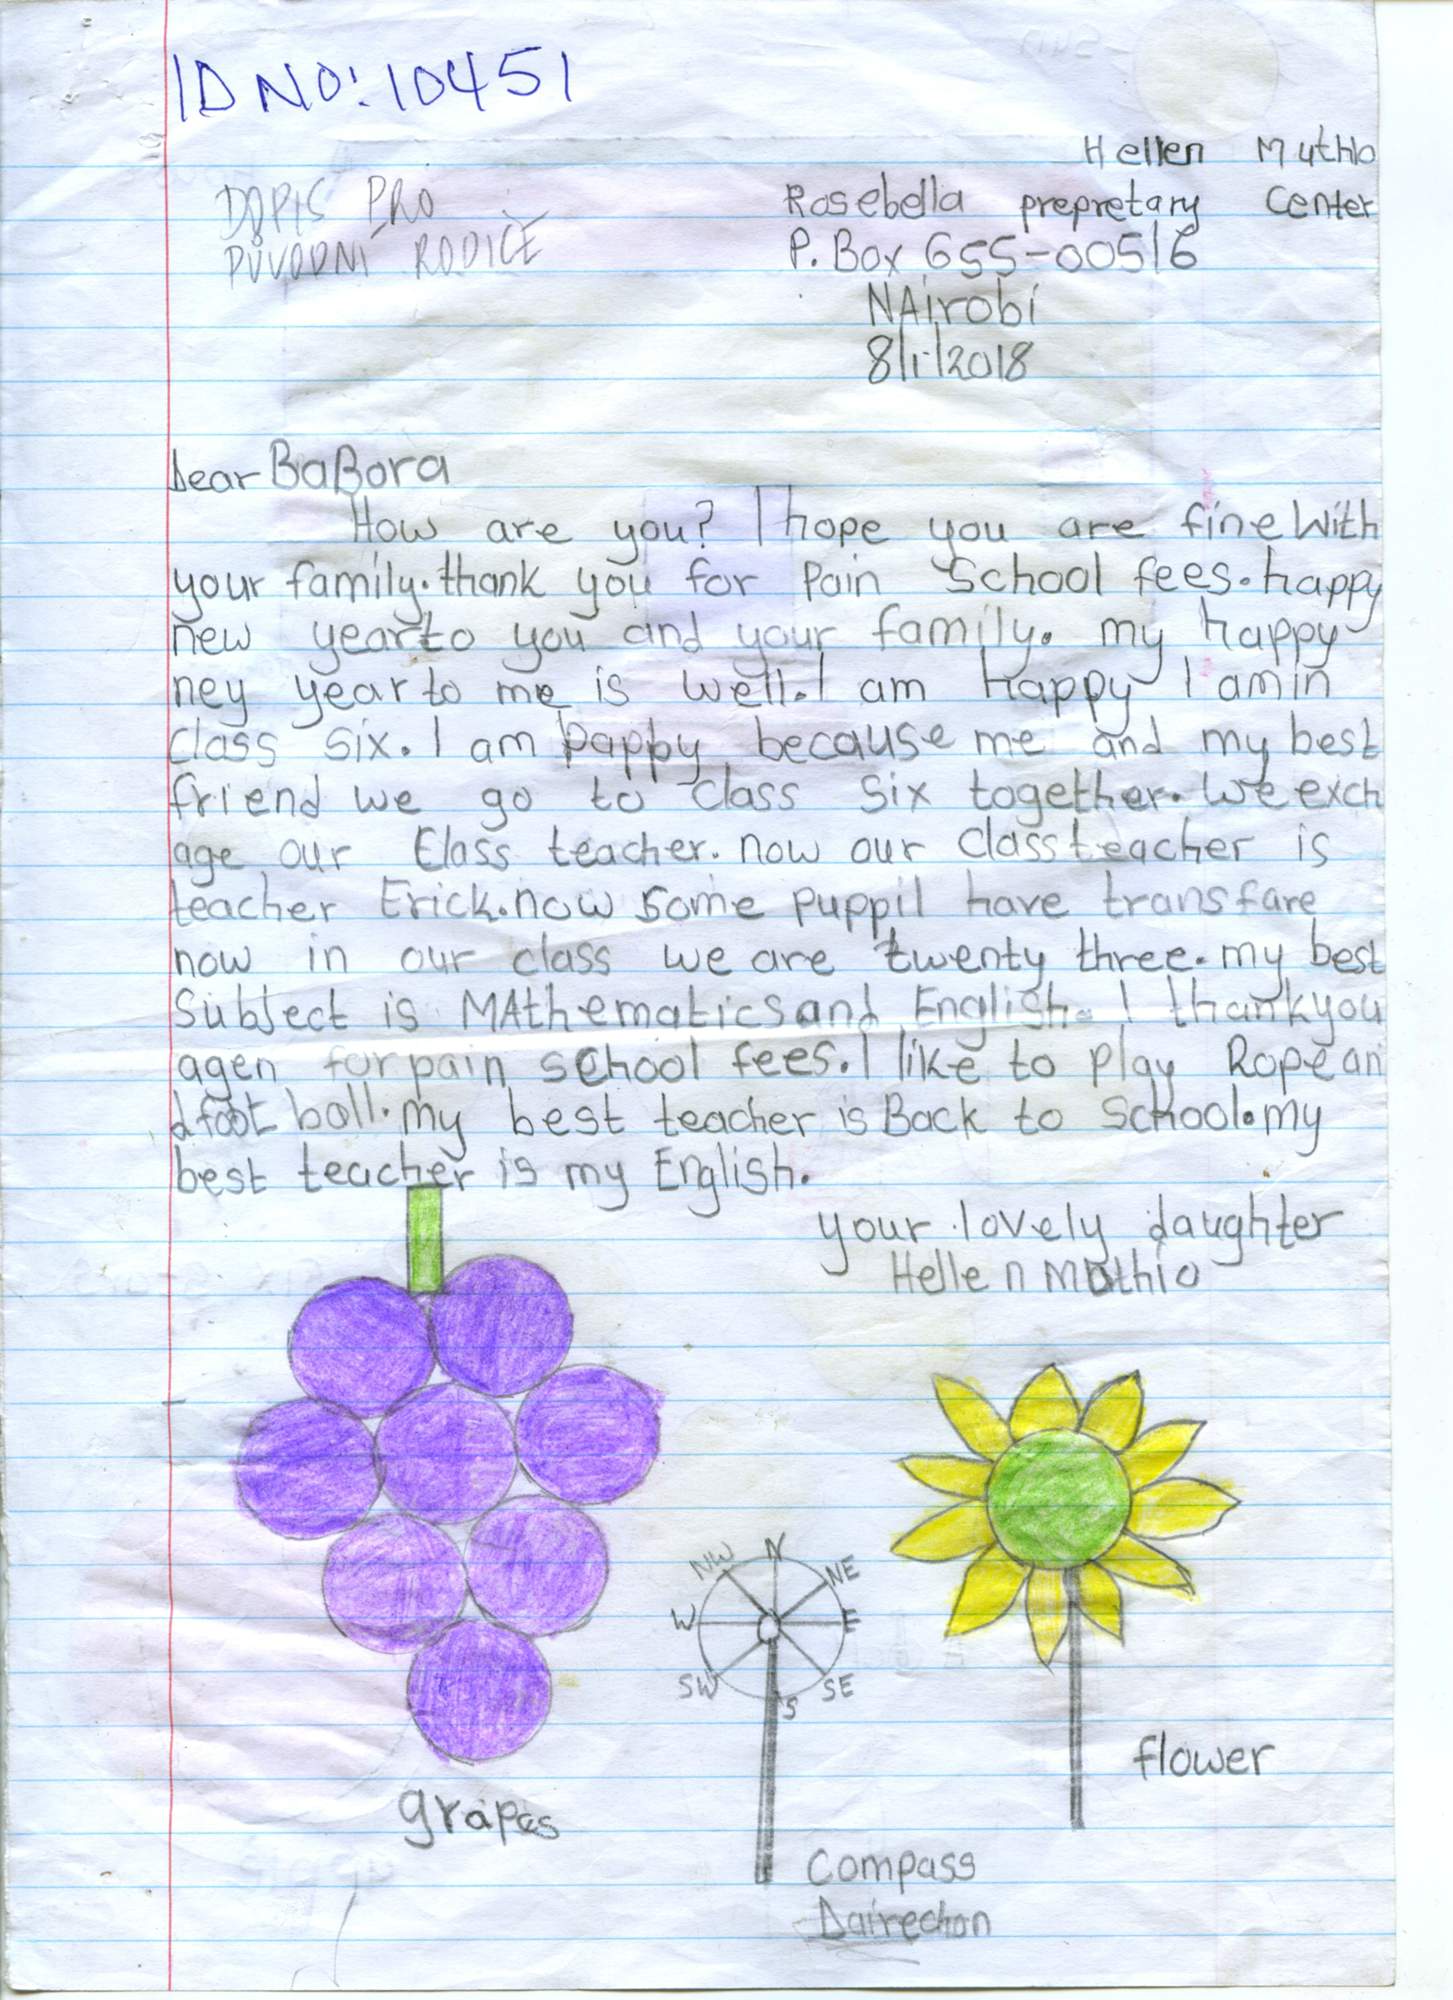 ID NO: 10451
Hellen Muthio
DOPIS PRO
PŮVODNÍ RODIČE
Rosebella prepretary Center
P. Box 655-00516
NAirobi
8/1/2018
Dear BaBora
How are you? I hope you are fine With
your family. thank you for Pain School fees. happy
new year to you and your family. my happy
ney year to me is well. I am happy I am in
class six. I am pappy because me and my best
friend we go to class six together. We exch
age our Class teacher. now our class teacher is
teacher Erick. now some puppil have transfare
now in our class we are twenty three. my best
Subject is MAthematics and English. I thank you
agen for pain school fees. I like to play Rope an
d foot ball. my best teacher is Back to School. my
best teacher is my English.
your lovely daughter
Hellen Muthio
N
NW NE
W E
SW SE
S
flower
grapes
Compass
Dairection